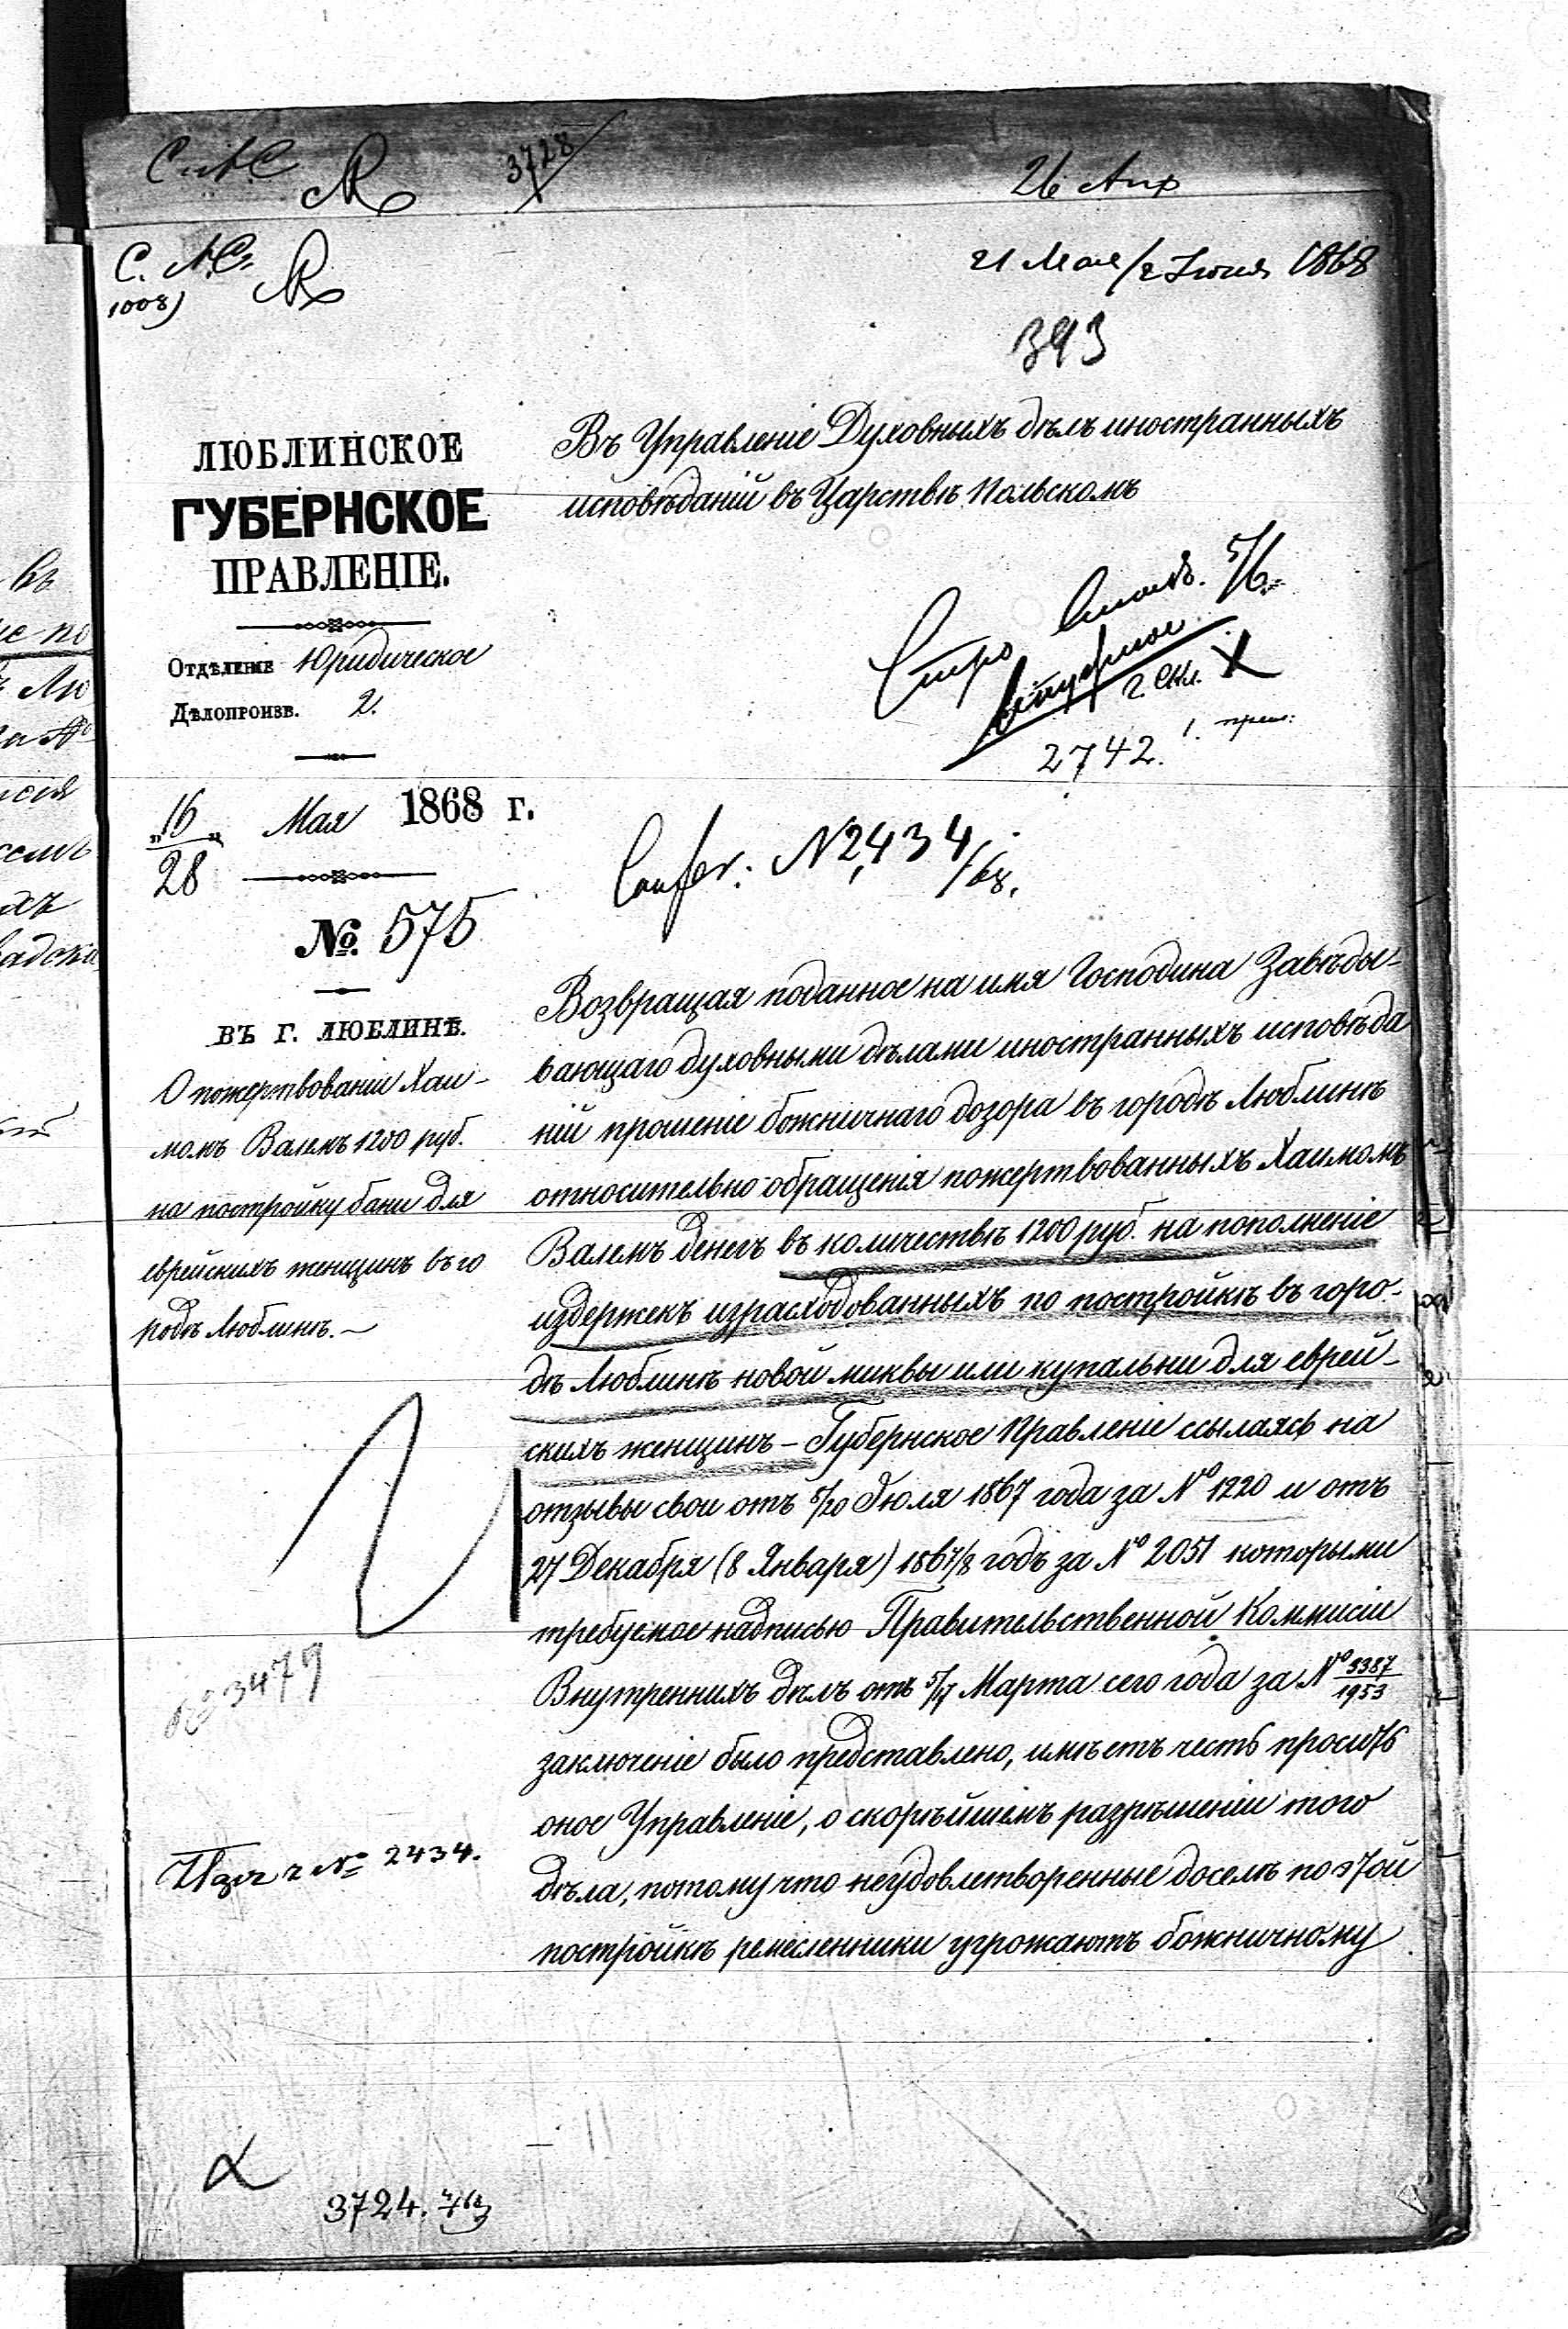 3728
26 Апр
21 Мая/2 Іюня 1868
1008)
393
ЛЮБЛИНСКОЕ
ГУБЕРНСКОЕ
ПРАВЛЕНІЕ.
Отдѣленіе Юридическое
Дѣлопроизв. 2.
„16„ Мая 1868 г.
28
№ 575
ВЪ Г. ЛЮБЛИНѢ.
О пожертвованіи Хаи-
момъ Валемъ 1200 руб.
на постройку бани для
еврейскихъ женщинъ въ го
родѣ Люблинѣ. —
Въ Управленіе Духовныхъ дѣлъ иностранныхъ
исповѣданій въ Царствѣ Польскомъ
5/6
2742.
Confer: N 2434/68.
Возвращая поданное на имя Господина Завѣды-
вающаго духовными дѣлами иностранныхъ исповѣда
ній прошеніе божничнаго дозора въ городѣ Люблинѣ
относительно обращенія пожертвованныхъ Хаимомъ
Валемъ денегъ въ количествѣ 1200 руб. на пополненіе
издержекъ израсходованныхъ по постройкѣ въ горо-
дѣ Люблинѣ новой миквы или купальни для еврей-
скихъ женщинъ – Губернское Правленіе ссылаясь на
отзывы свои отъ 8/20 Іюля 1867 года за № 1220 и отъ
27 Декабря (8 Января) 1867/8 годъ за № 2051 которыми
требуемое надписью Правительственной Коммисіи
Внутреннихъ дѣлъ отъ 5/17 Марта сего года за № 3387/1953
заключеніе было представлено, имѣетъ честь просить
оное Управленіе, о скорѣйшемъ разрѣшеніи того
дѣла, потому что неудовлетворенные доселѣ по этой
постройкѣ ремесленники угрожаютъ божничному
3479
№ 2434.
3724.